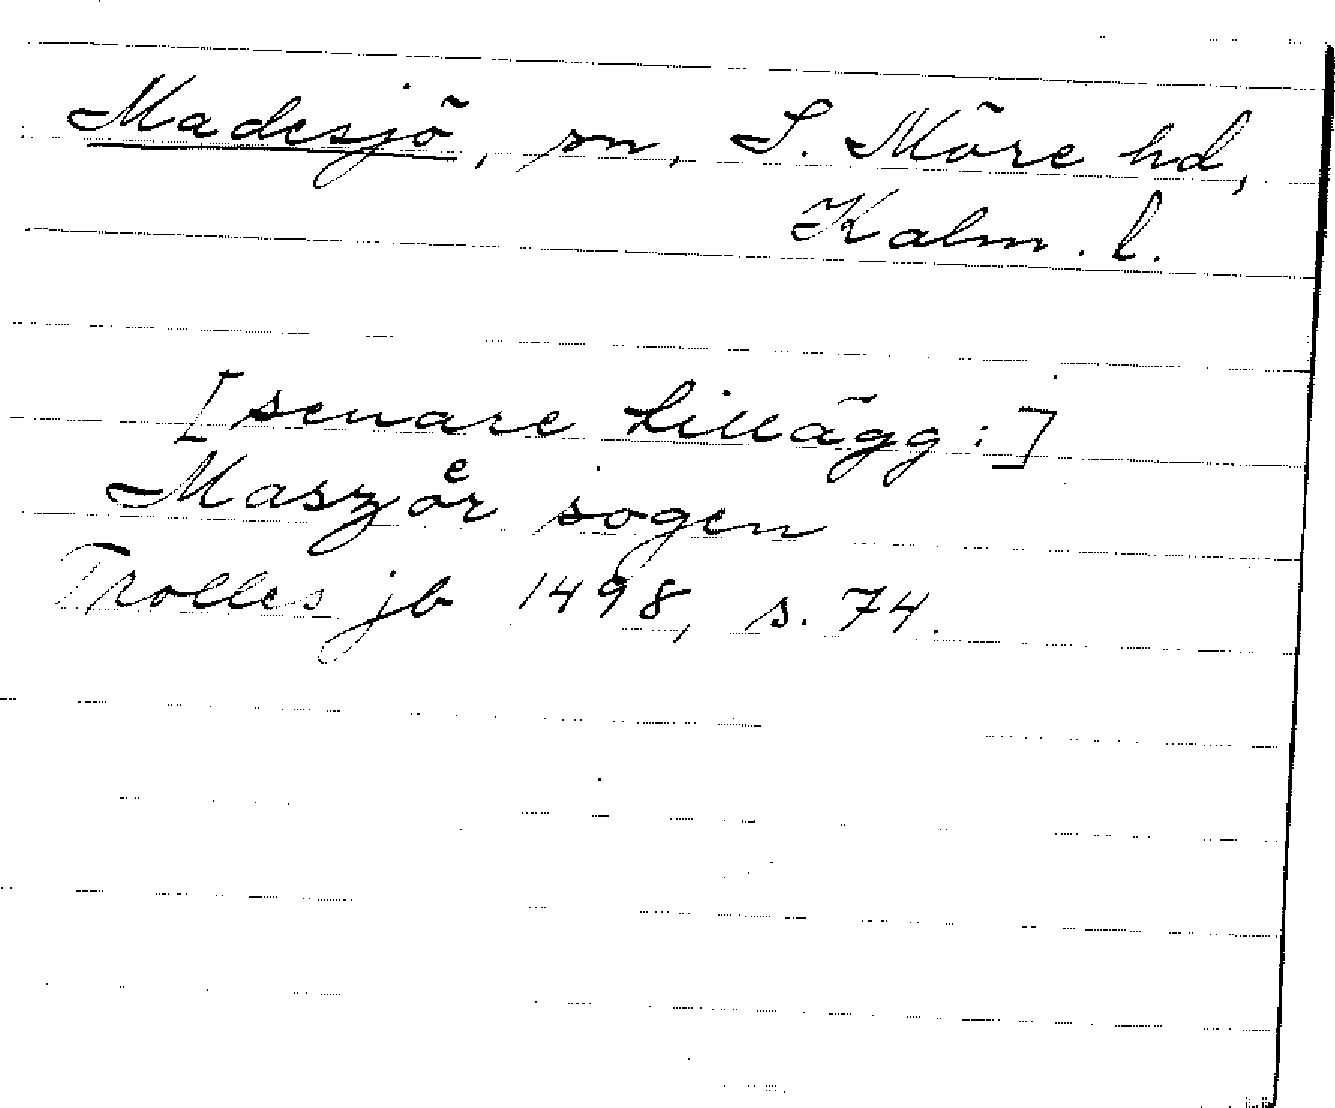 Madesjö, sn, S. Möre hd,
Kalm. l.
[senare tillägg:]
Maszoͤr sogen
Trolles jb 1498, s. 74.